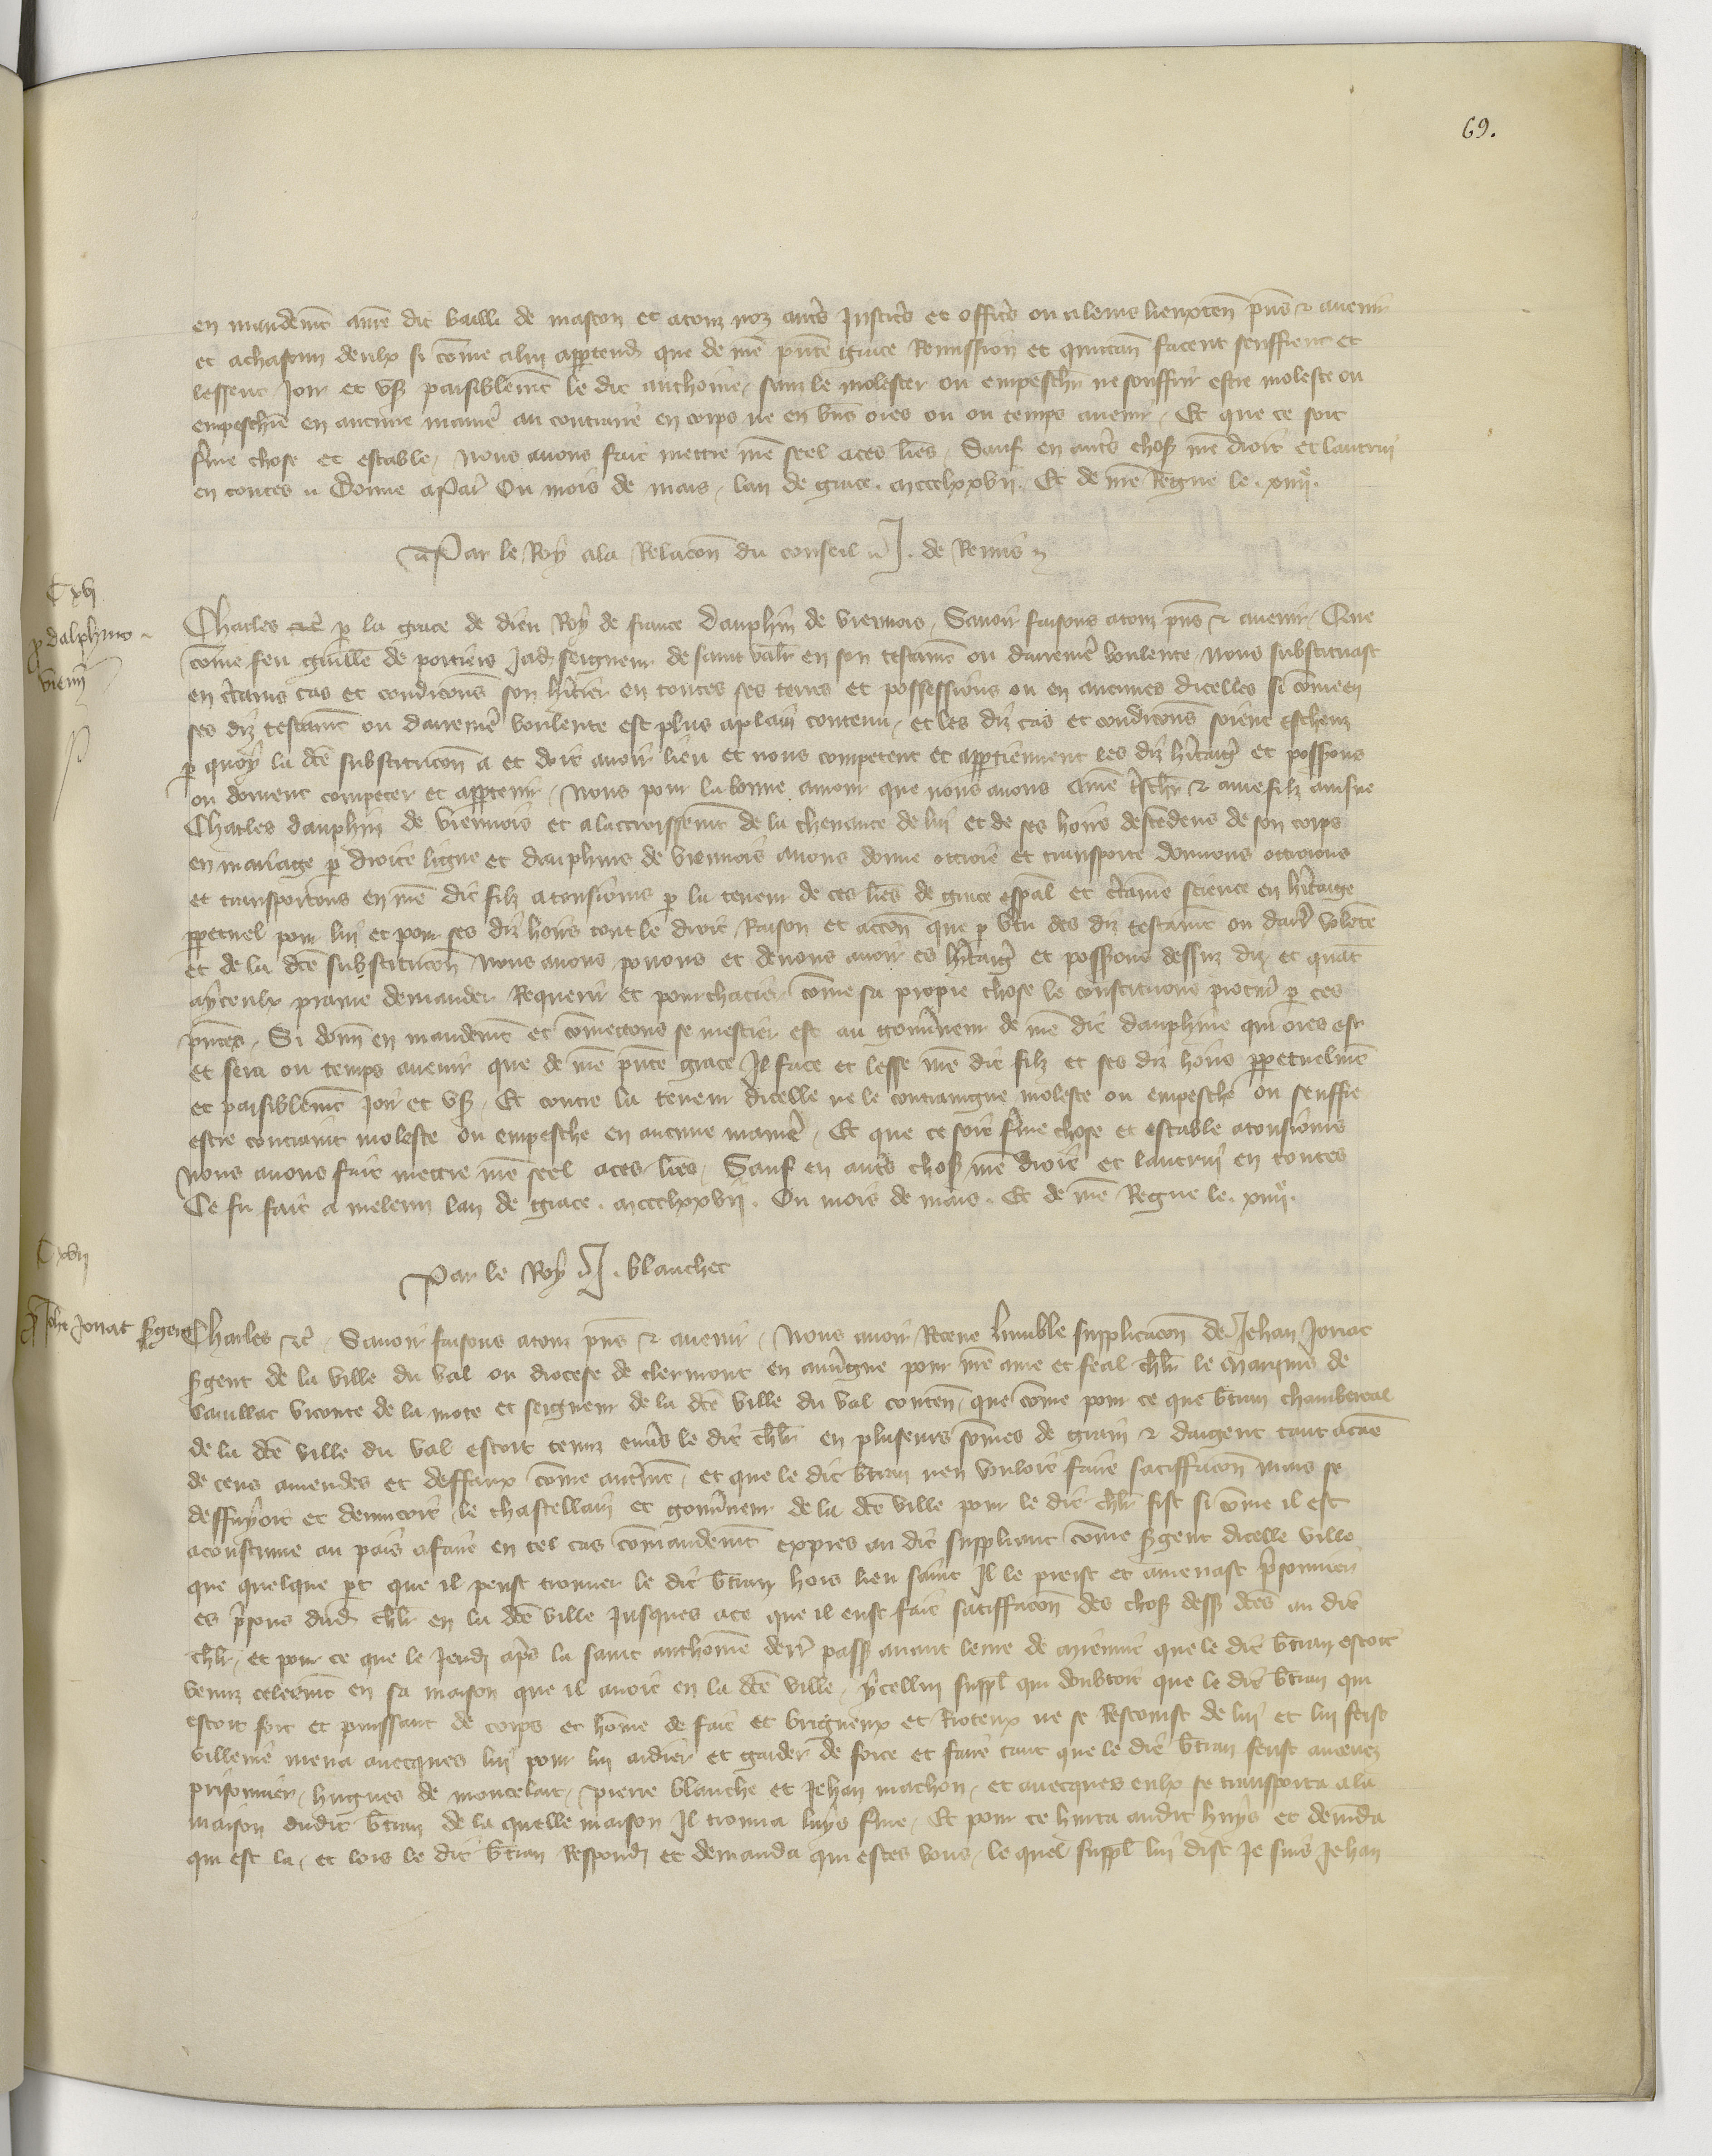 69.
en mandemt anre dit bailli de mascon et atous noz autrs Justicrs et officrs ou aleurs lieuxten pns & avenir
et achascun deulx si come alui appartendra que de nre pnte grace Remission et quittance facent seuffrent et
lessent Joir et user paisiblemt le dit anthoine sanz le molester ou empeschier ne souffrir estre moleste ou
empeschie en aucune maniere au contraire en corps ne en biens ores ou ou temps avenir. Et que ce soit
ferme chose et estable, Nous avons fait mettre nre seel aces lres. Sauf en autrs choses nre droit et lautrui
en toutes. Donne a Paris Ou mois de mars, lan de grace. mccclxxvii. Et de nre Regne le. xiiii.
Par le Roy ala Relacon du conseil J. de Remis
C xvi
p dalphino vienn
Charles etc p la grace de dieu Roy de france Dauphin de viennois, Savoir faisons atous pns & avenir, Que
come feu guille de poitiers Jadis seigneur de saint valier en son testamt ou darreniere voulente, nous substituast
en certains cas et condicons son heritier en toutes ses terres et possessions ou en aucunes dicelles si come en
ses diz testamt ou darreniere voulente est plus aplain contenu, et les diz cas et condicons soient escheuz
p quoy la dte substitucon a et doit avoir lieu et nous competent et appartiennent les diz heritages et possessions
ou doivent competer et appartenir, Nous pour la bonne amour que nous avons a nre trescher & ame filz ainsne
Charles dauphin de viennois et alaccroissemt de la chevance de lui et de ses hoirs descendens de son corps
en mariage p droite ligne et dauphins de viennois avons donne ottroie et transporte donnons ottroions
et transportons en nre dit filz atousiours p la teneur de ces lres de grace espal et certaine science en heritage
ppetuel pour lui et pour ses diz hoirs tout le droit Raison et accon que p vertu des diz testamt ou darr volente
et de la dte substitucon Nous avons povons et devons avoir es heritages et possessions dessus diz et quant
ayceulx puisse demander Requerir et pourchacier come sa propre chose le constituons procureur p ces
pntes, Si donn en mandemt et comettons se mestier est au gouverneur de nre dit dauphine qui ores est
et sera ou temps avenir que de nre pnte grace Il face et lesse nre dit filz et ses diz hoirs ppetuelmt
et paisiblemt Joir et user, Et contre la teneur dicelle ne le contraingne moleste ou empesche ou seuffre
estre contraint moleste ou empesche en aucune maniere, Et que ce soit ferme chose et estable atousiours
nous avons fait mettre nre seel aces lres, Sauf en autrs choses nre droit et lautrui en toutes
Ce fu fait a meleun lan de grace. mccclxxvii. Ou mois de mars. Et de nre Regne le. xiiii.
Par le Roy J. blanchet
C xvii
p Jehe Jouat sergent
Charles etc. Savoir faisons atous pns & avenir, Nous avoir Receue lumble supplicacon de Jehan Jouat
sergent de la ville du val ou diocese de clermont en auvergne pour nre ame et feal chlr le marquis de
caнillac viconte de la mote et seigneur de la dte ville du val conten, que come pour ce que btran chambereal
de la dte ville du val estoit tenuz envers le dit chlr en pluseurs somes de grain & dargent tant acause
de cens amendes et deffaux come autremt, et que le dit btran nen vouloit faire satiffacon mais se
deffuyoit et demucoit le chastellain et gouverneur de la dte ville pour le dit chlr fist si come il est
acoustume au pais afaire en tel cas comandemt expres au dit suppliant come sergent dicelle ville
que quelque pt que il peust trouver le dit btran hors lieu saint Il le preist et amenast prisonnier
es prisons dud chlr en la dte ville Jusques ace que il eust fait satiffacon des choses dess dtes au dit
chlr, et pour ce que le Jeudi apres la saint anthoine derr passe avant leure de mienuit que le dit btran estoit
venuz celeemt en sa maison que il avoit en la dte ville, ycellui suppl qui doubtoit que le dit btran qui
estoit fort et puissant de corps et home de fait et brigueux et Rioteux ne se Rescouist de lui et lui feist
villenie mena avecques lui pour lui aidier et garder de force et faire tant que le dit btran feust amenez
prisonnier, hugues de moncelat, pierre blanche et Jehan machon, et avecques eulx se transporta ala
maison dudit btran de la quelle maison Il trouva luys ferme, Et pour ce hurta audit huys et demanda
qui est la, et lors le dit btran Respondi et demanda qui estes vous, le quel suppl lui dist Je suis Jehan